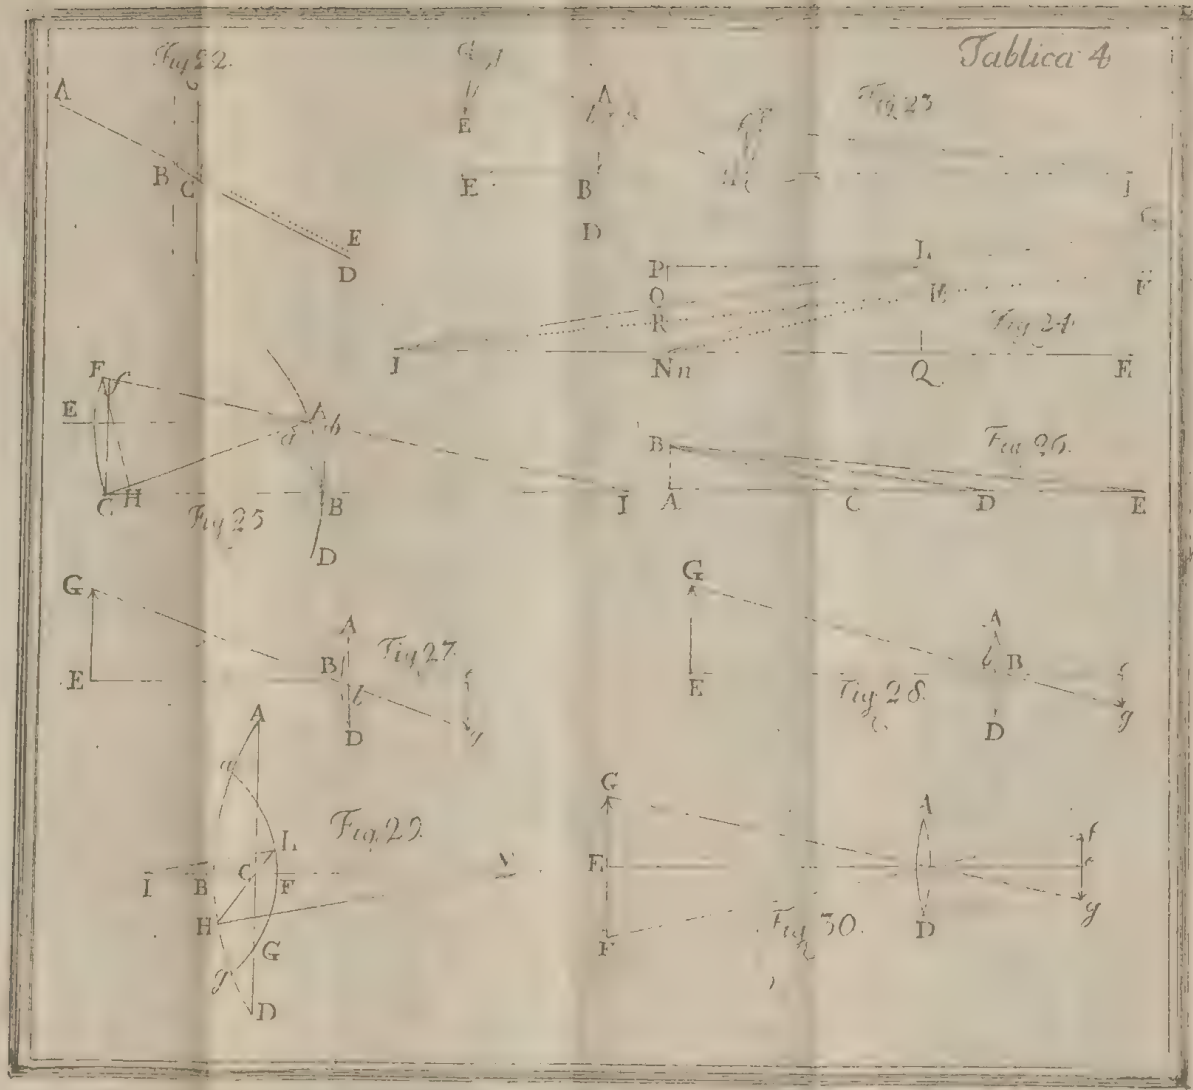 Tablica 4
Fig 22.
A
B
C
E
D
E
E
A
B
D
Fig 23
I
G
P
O
R
N n
I
L
E
F
Q
E
Fig 24
F
f
E
C
H
A
a
b
B
D
I
Fig 25
B
A
C
D
E
Fig 26.
G
E
A
B
b
D
g
Fig 27.
G
E
A
b
B
D
g
Fig 28.
A
a
L
I
B
C
F
H
G
g
D
Fig. 29.
G
E
F
A
D
f
e
g
Fig 30.